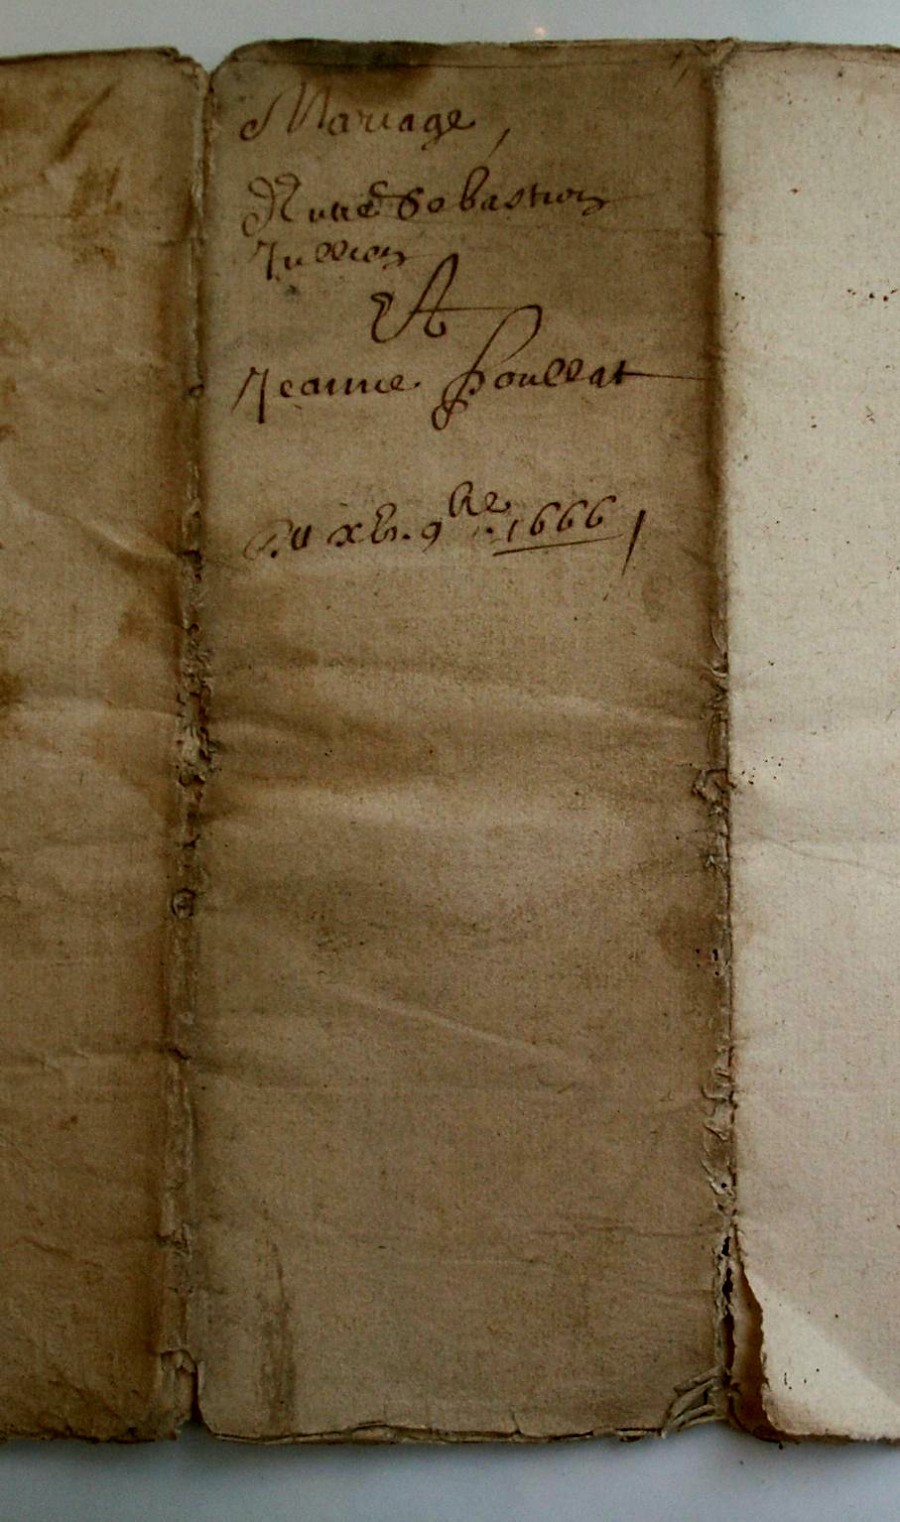 Mariage
Entre Sebastien
Jullien
Et
Jeanne Poullat
Du xv. 9bre. 1666